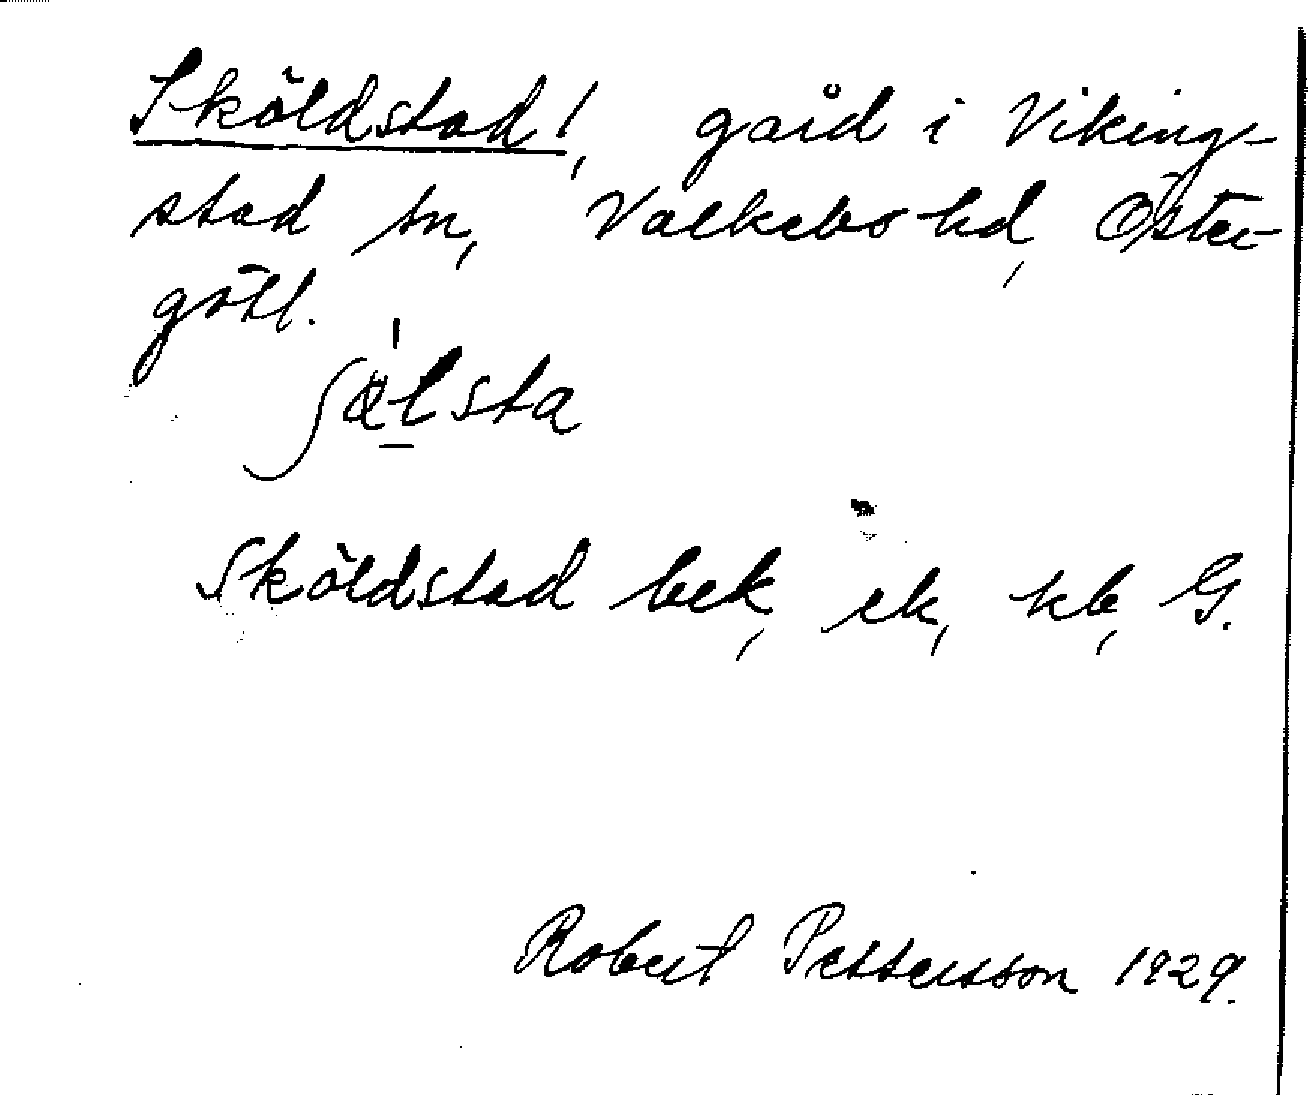 Sköldstad!, gård i Viking-
stad sn, Valkebo hd, Öster-
götl.
ʃälsta
Sköldstad bek, ek, kb, G.
Robert Pettersson 1929.